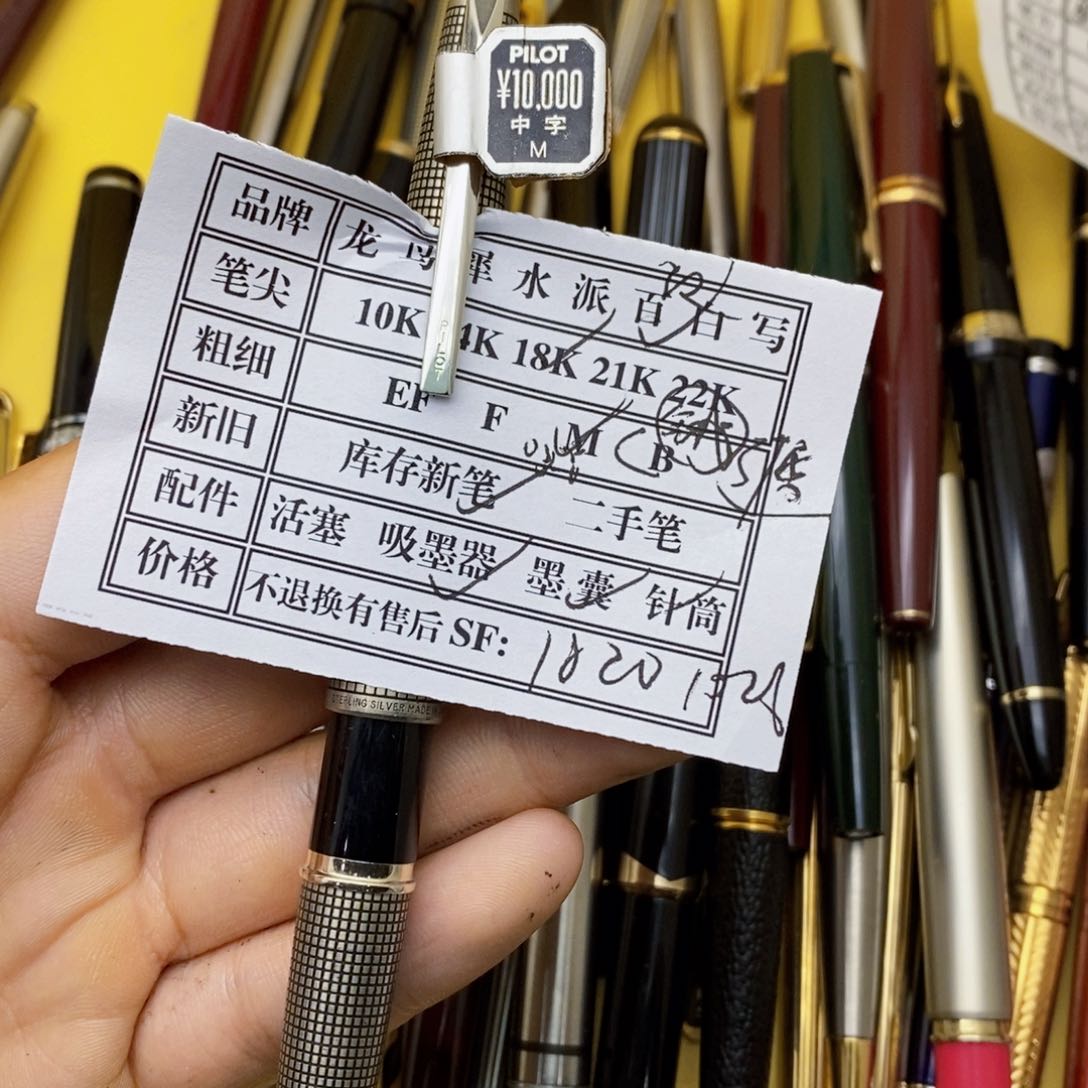 PILOT
¥10,000
中字
M
品牌 龙 鸟 犀 水 派 百 白 写
笔尖 10K 14K 18K 21K 22K
粗细 EF F M B
新旧 库存新笔 二手笔
配件 活塞 吸墨器 墨囊 针筒
价格 不退换有售后 SF: 1820
PILOT
STERLING SILVER MADE